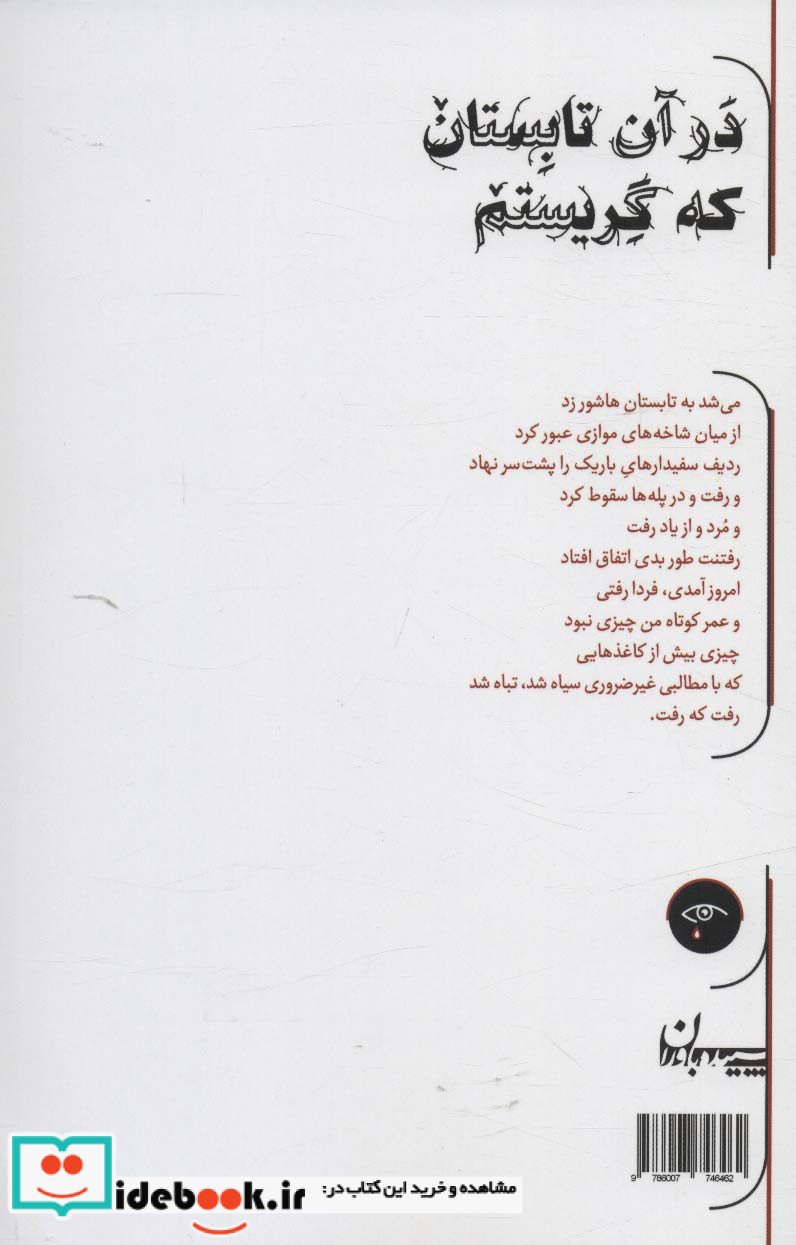 دَر آن تابِستان
که گِریستم
می‌شد به تابستان هاشور زد
از میان شاخه‌های موازی عبور کرد
ردیف سفیدارهایِ باریک را پشت‌سر نهاد
و رفت و در پله‌ها سقوط کرد
و مُرد و از یاد رفت
رفتنت طور بدی اتفاق افتاد
امروز آمدی، فردا رفتی
و عمر کوتاه من چیزی نبود
چیزی بیش از کاغذهایی
که با مطالبی غیرضروری سیاه شد، تباه شد
رفت که رفت.
سپیده‌باوران
9 786007 746462
idebook.ir مشاهده و خرید این کتاب در: